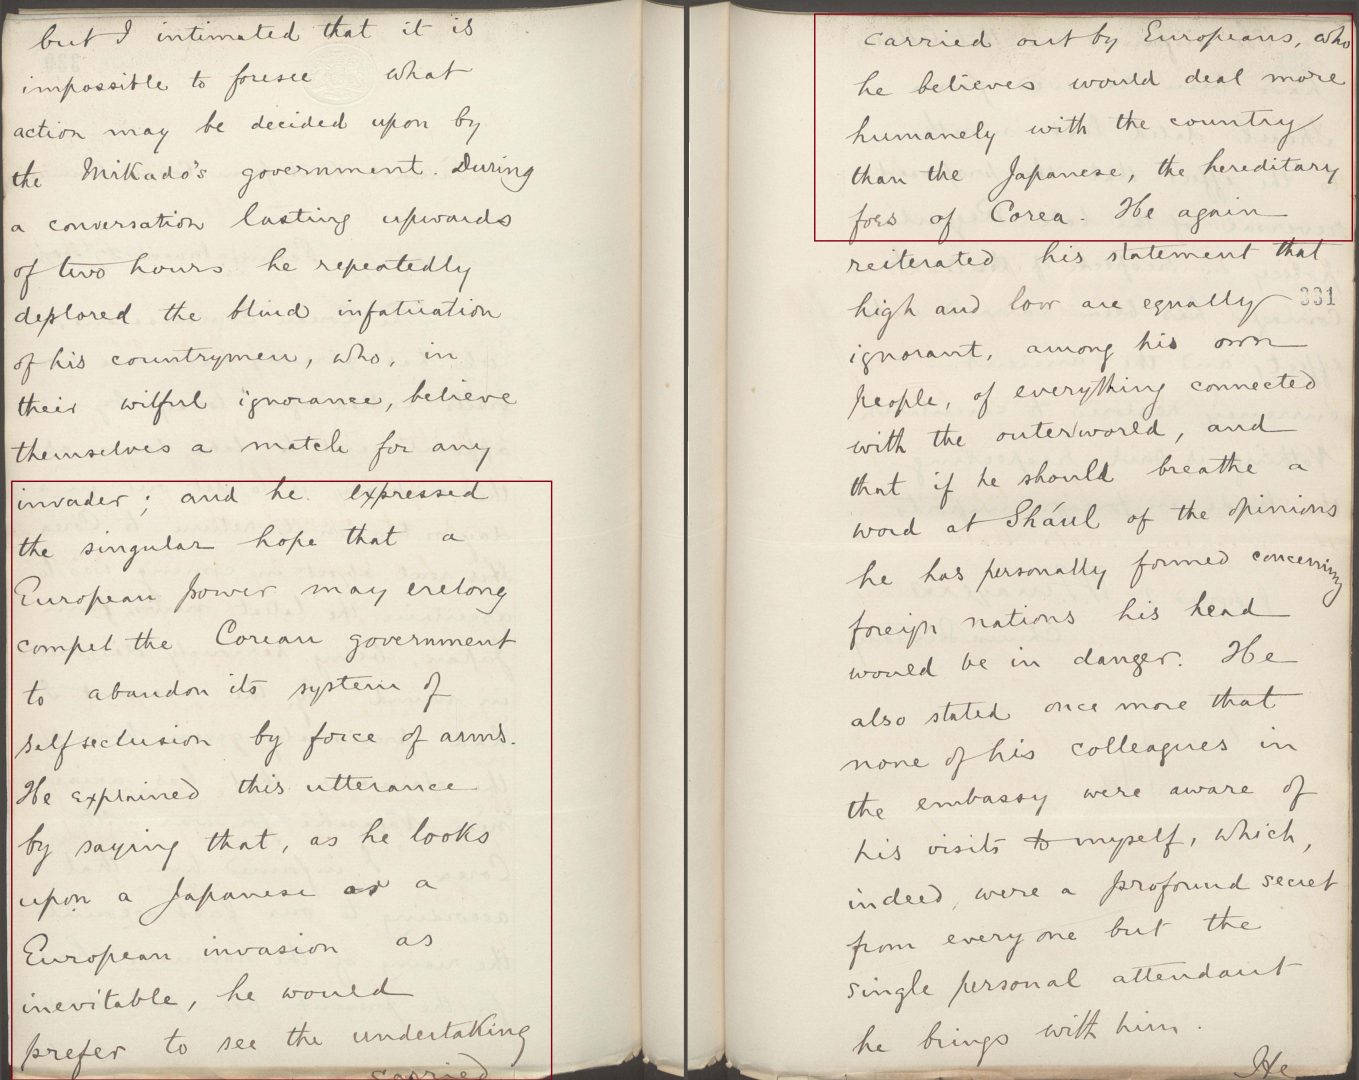 but I intimated that it is
impossible to foresee what
action may be decided upon by
the Mikado's government. During
a conversation lasting upwards
of two hours he repeatedly
deplored the blind infatuation
of his countrymen, who, in
their wilful ignorance, believe
themselves a match for any
invader; and he expressed
the singular hope that a
European power may erelong
compel the Corean government
to abandon its system of
self seclusion by force of arms.
He explained this utterance
by saying that, as he looks
upon a Japanese or a
European invasion as
inevitable, he would
prefer to see the undertaking
carried
carried out by Europeans, who
he believes would deal more
humanely with the country
than the Japanese, the hereditary
foes of Corea. He again
reiterated his statement that
high and low are equally
331
ignorant, among his own
people, of everything connected
with the outer world, and
that if he should breathe a
word at Shául of the opinions
he has personally formed concerning
foreign nations his head
would be in danger. He
also stated once more that
none of his colleagues in
the embassy were aware of
his visits to myself, which,
indeed, were a profound secret
from every one but the
single personal attendant
he brings with him.
He